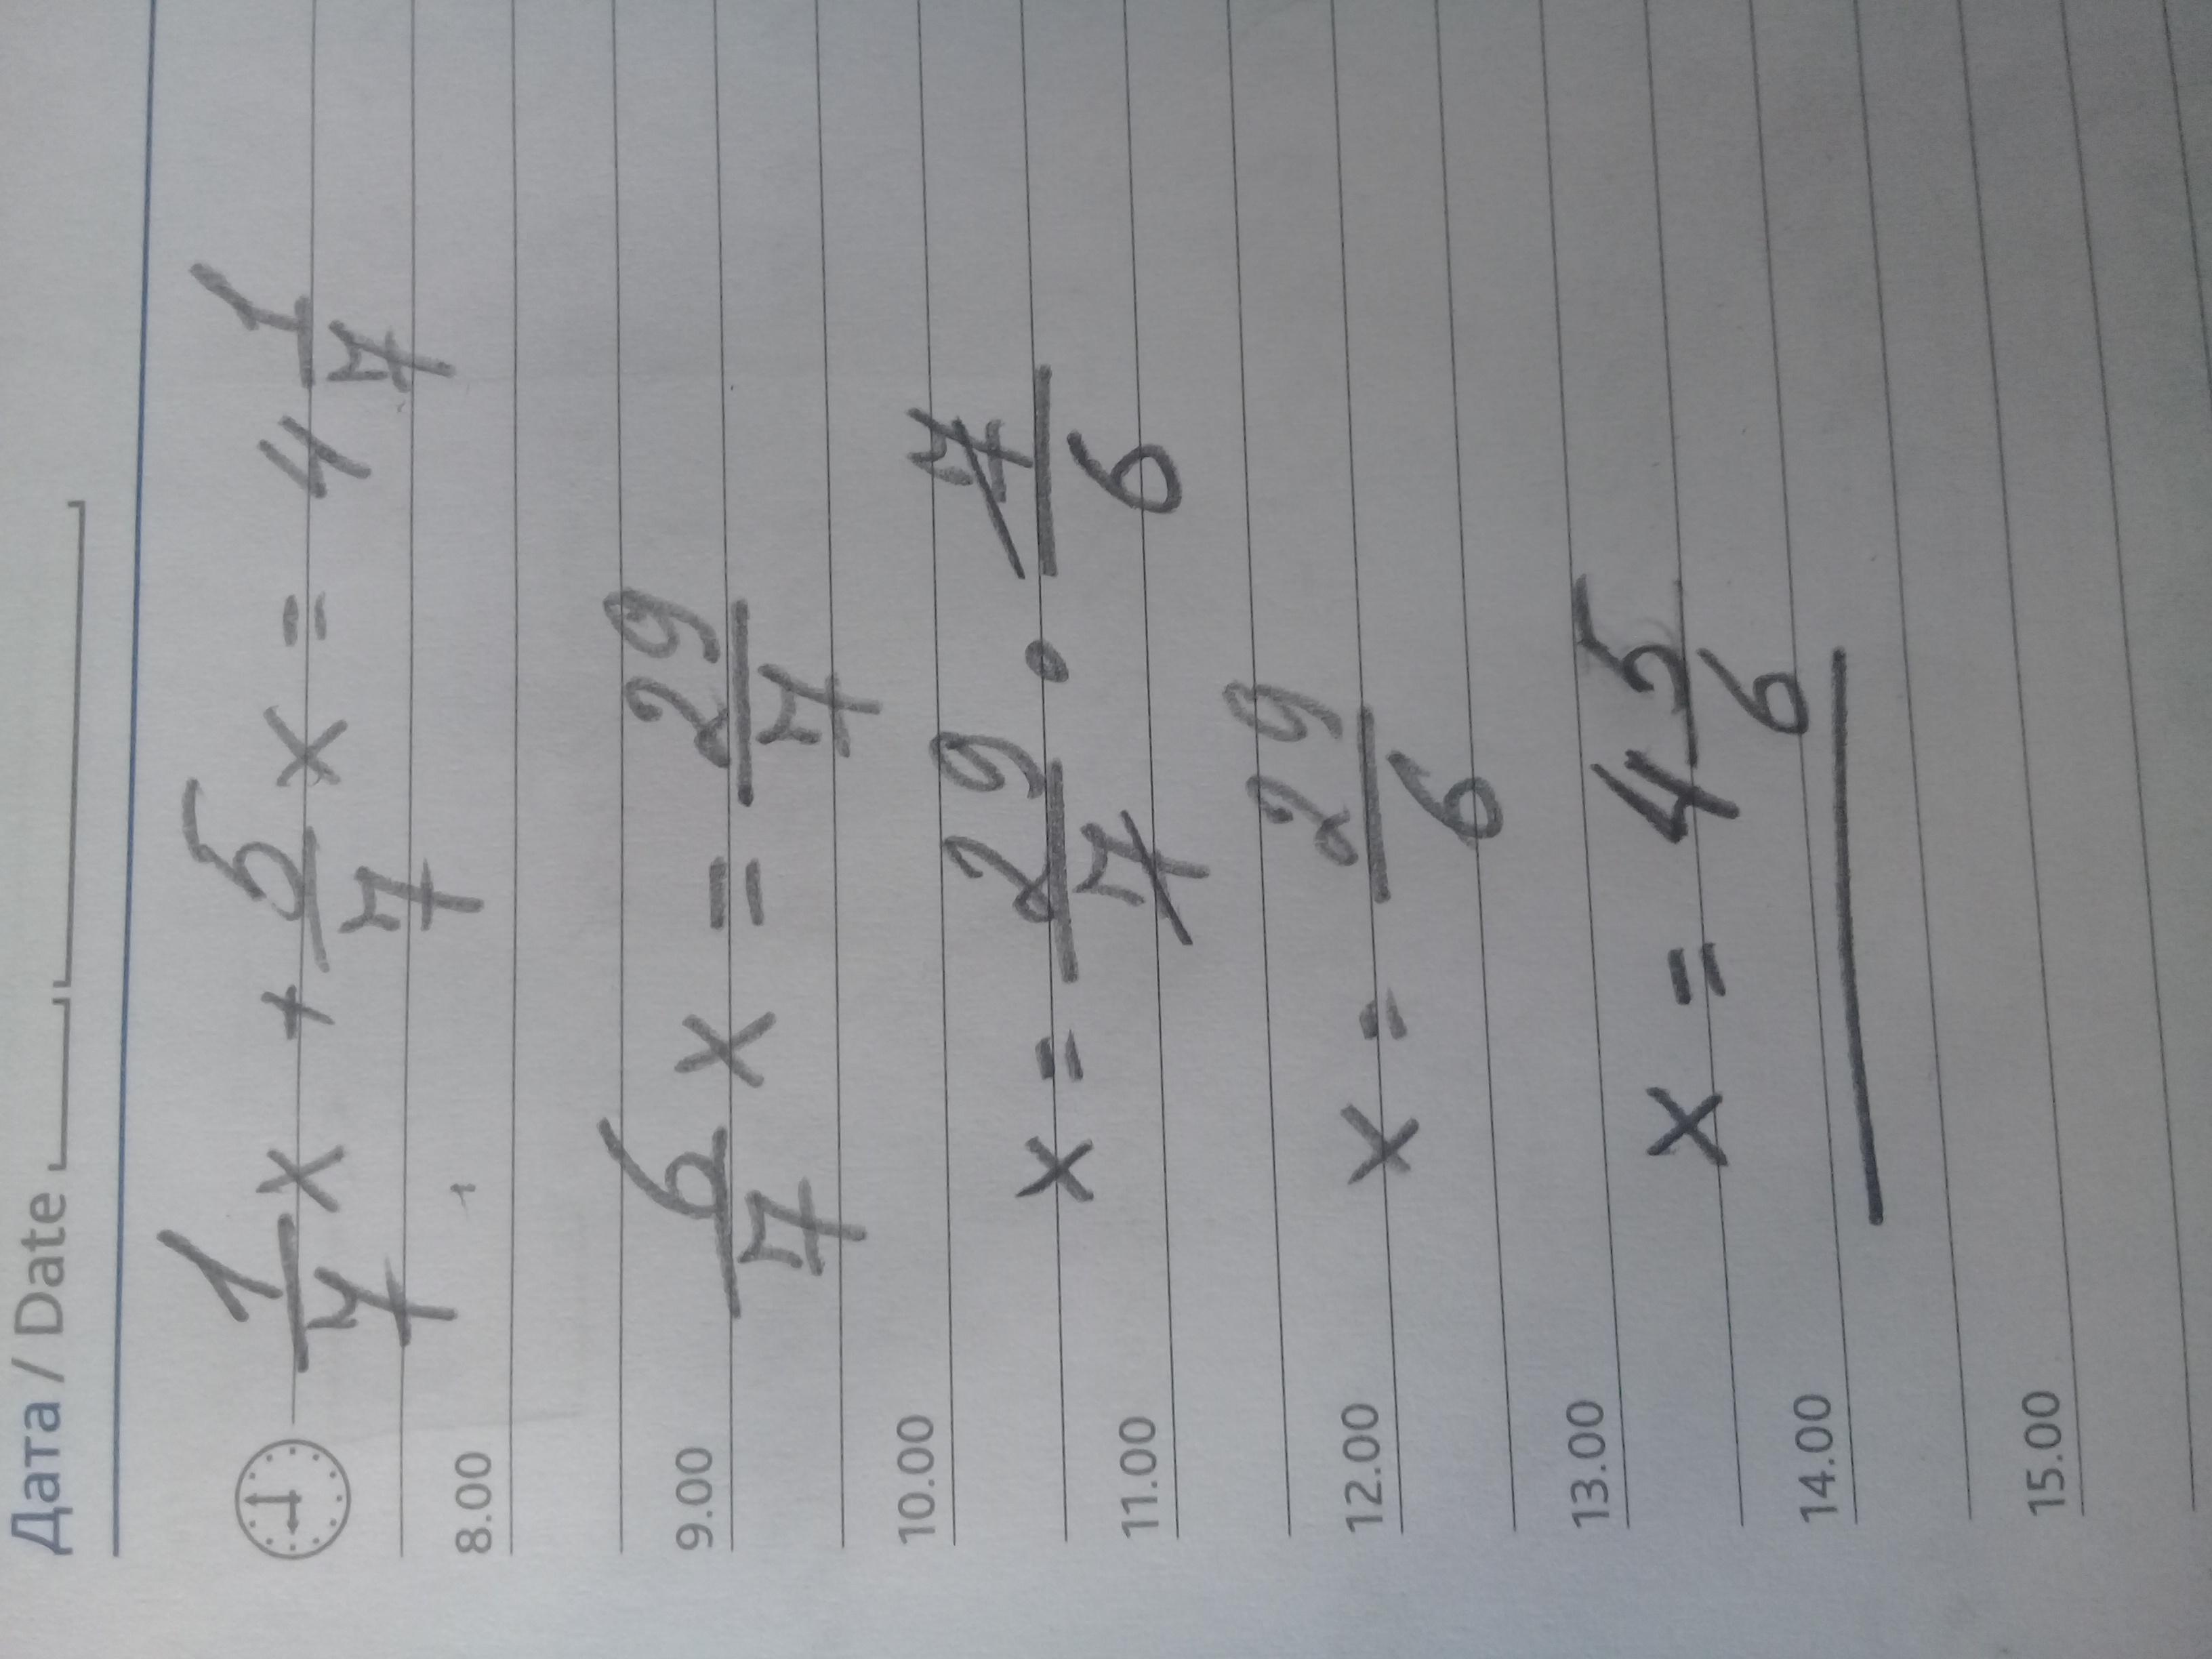 Дата / Date
1/7 x + 5/7 x = 4 1/7
8.00
6/7 x = 29/7
9.00
10.00
x = 29/7 · 7/6
11.00
x = 29/6
12.00
x = 4 5/6
13.00
14.00
15.00